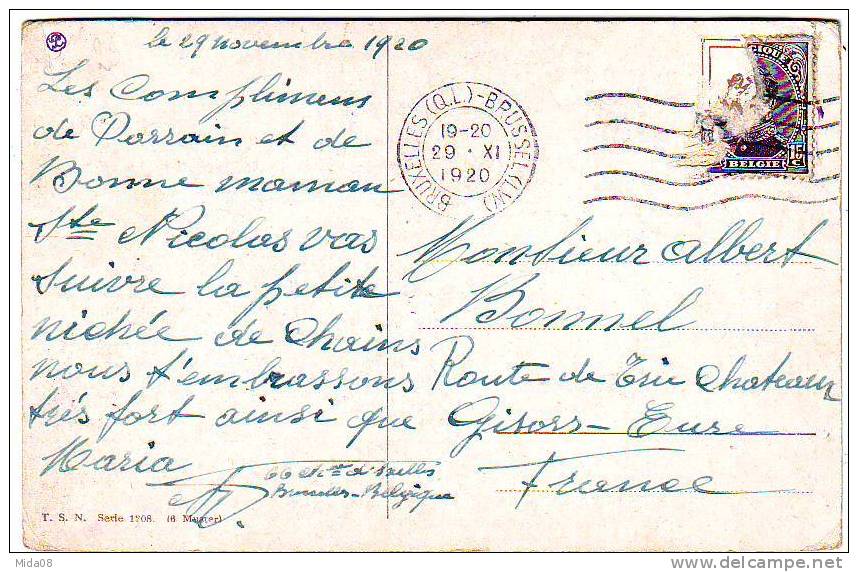 le 29 novembre 1920
Les Complimens
de Parrain et de
Bonne maman
Ste Nicolas vas
suivre la petite
nichée de Chains
nous t'embrassons
très fort ainsi que
Maria
66 Chée d'Ixelles
Bruxelles-Belgique
T. S. N. Serie 1208. (6 Muster)
BRUXELLES (Q.L.)-BRUSSEL (L.W.)
19-20
29 · XI
1920
BELGIE
15
Monsieur Albert
Bonnel
Route de Trie Chateau
Gisors-Eure
France
Mida08
delcampe.net